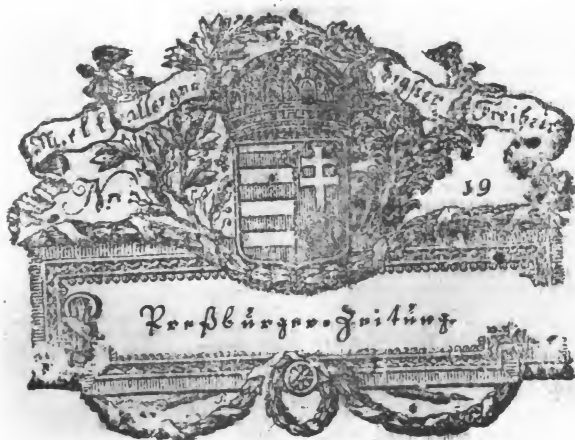 Mit k. k. allergn
digster Freiheit
Nro
19
Preßbürger-Zeitüng